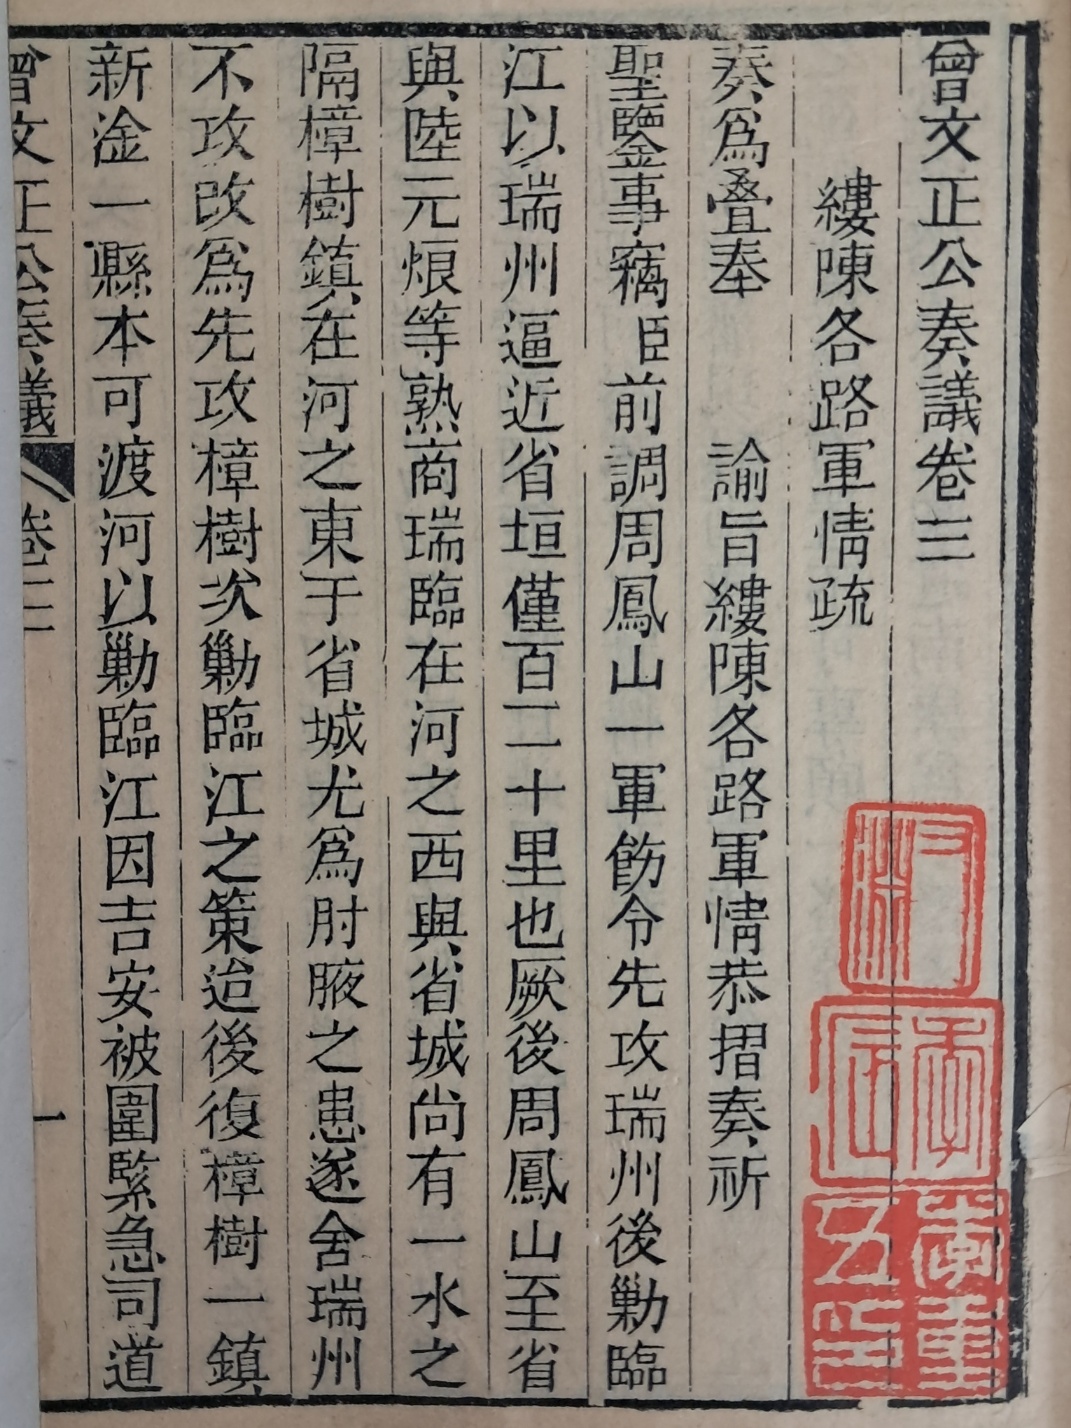 曾文正公奏議卷三
縷陳各路軍情疏
奏爲叠奉 諭旨縷陳各路軍情恭摺奏祈
聖鑒事竊臣前調周鳳山一軍飭令先攻瑞州後勦臨
江以瑞州逼近省垣僅百二十里也厥後周鳳山至省
與陸元烺等熟商瑞臨在河之西與省城尚有一水之
隔樟樹鎮在河之東于省城尤爲肘腋之患遂舍瑞州
不攻改爲先攻樟樹次勦臨江之策迨後復樟樹一鎮
新淦一縣本可渡河以勦臨江因吉安被圍緊急司道
曾文正公奏議 卷三 一